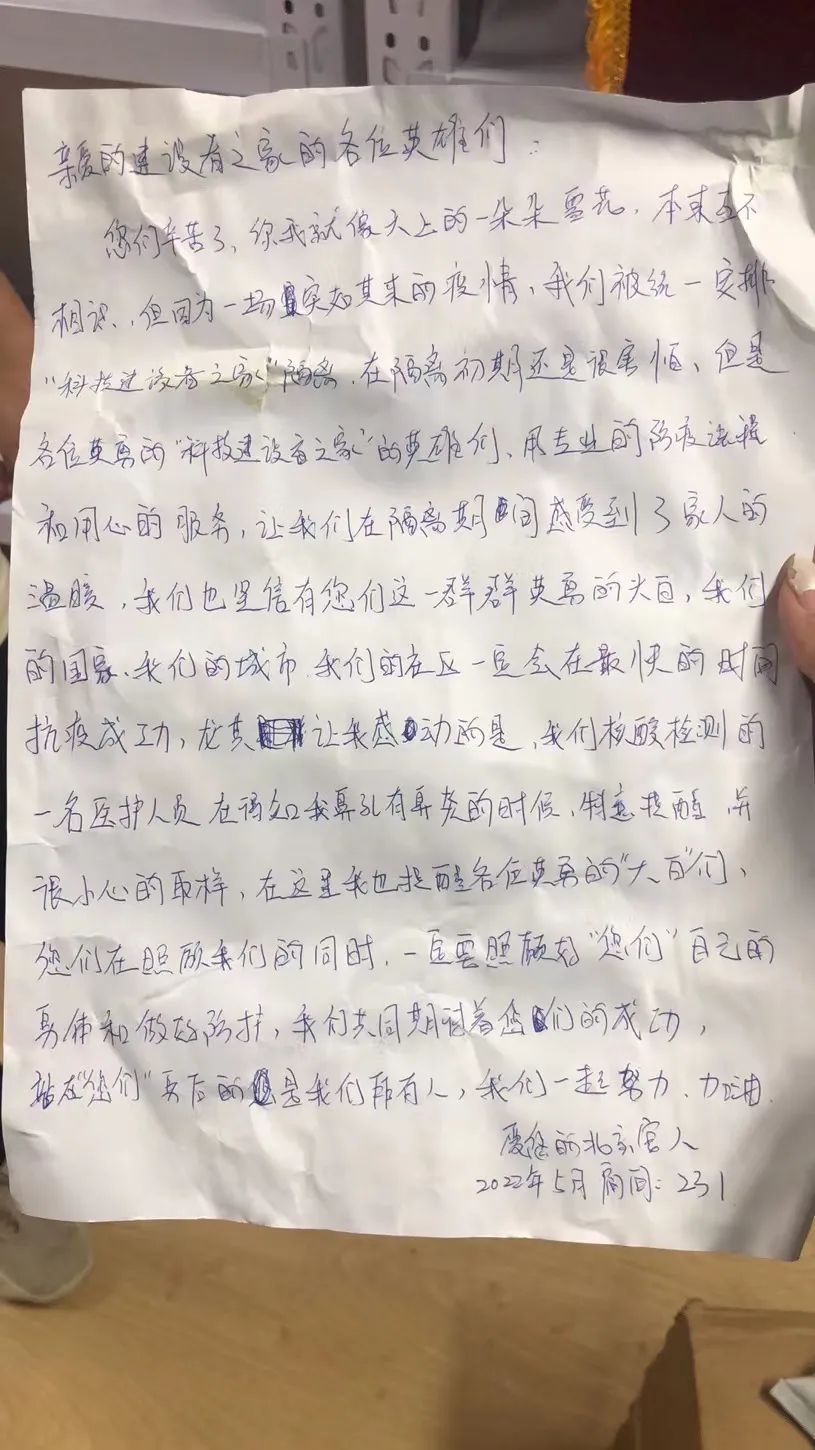 亲爱的建设者之家的各位英雄们：
您们辛苦了、你我就像天上的一朵朵雪花，本来互不
相识，但因为一场突如其来的疫情，我们被统一安排
“科技建设者之家”隔离，在隔离初期还是很害怕、但是
各位英勇的“科技建设者之家”的英雄们、用专业的防疫流程
和用心的服务，让我们在隔离期间感受到了家人的
温暖，我们也坚信有您们这一群群英勇的大白，我们
的国家、我们的城市 我们的社区一定会在最快的时间
抗疫成功，尤其让我感动的是，我们核酸检测的
一名医护人员 在得知我鼻孔有鼻炎的时候，特意提醒 并
很小心的取样，在这里我也提醒各位英勇的“大白”们、
您们在照顾我们的同时，一定要照顾好“您们”自己的
身体和做好防护，我们共同期待着您们的成功，
站在“您们”背后的是我们所有人，我们一起努力、加油
爱您的北京客人
2022年5月 房间：231